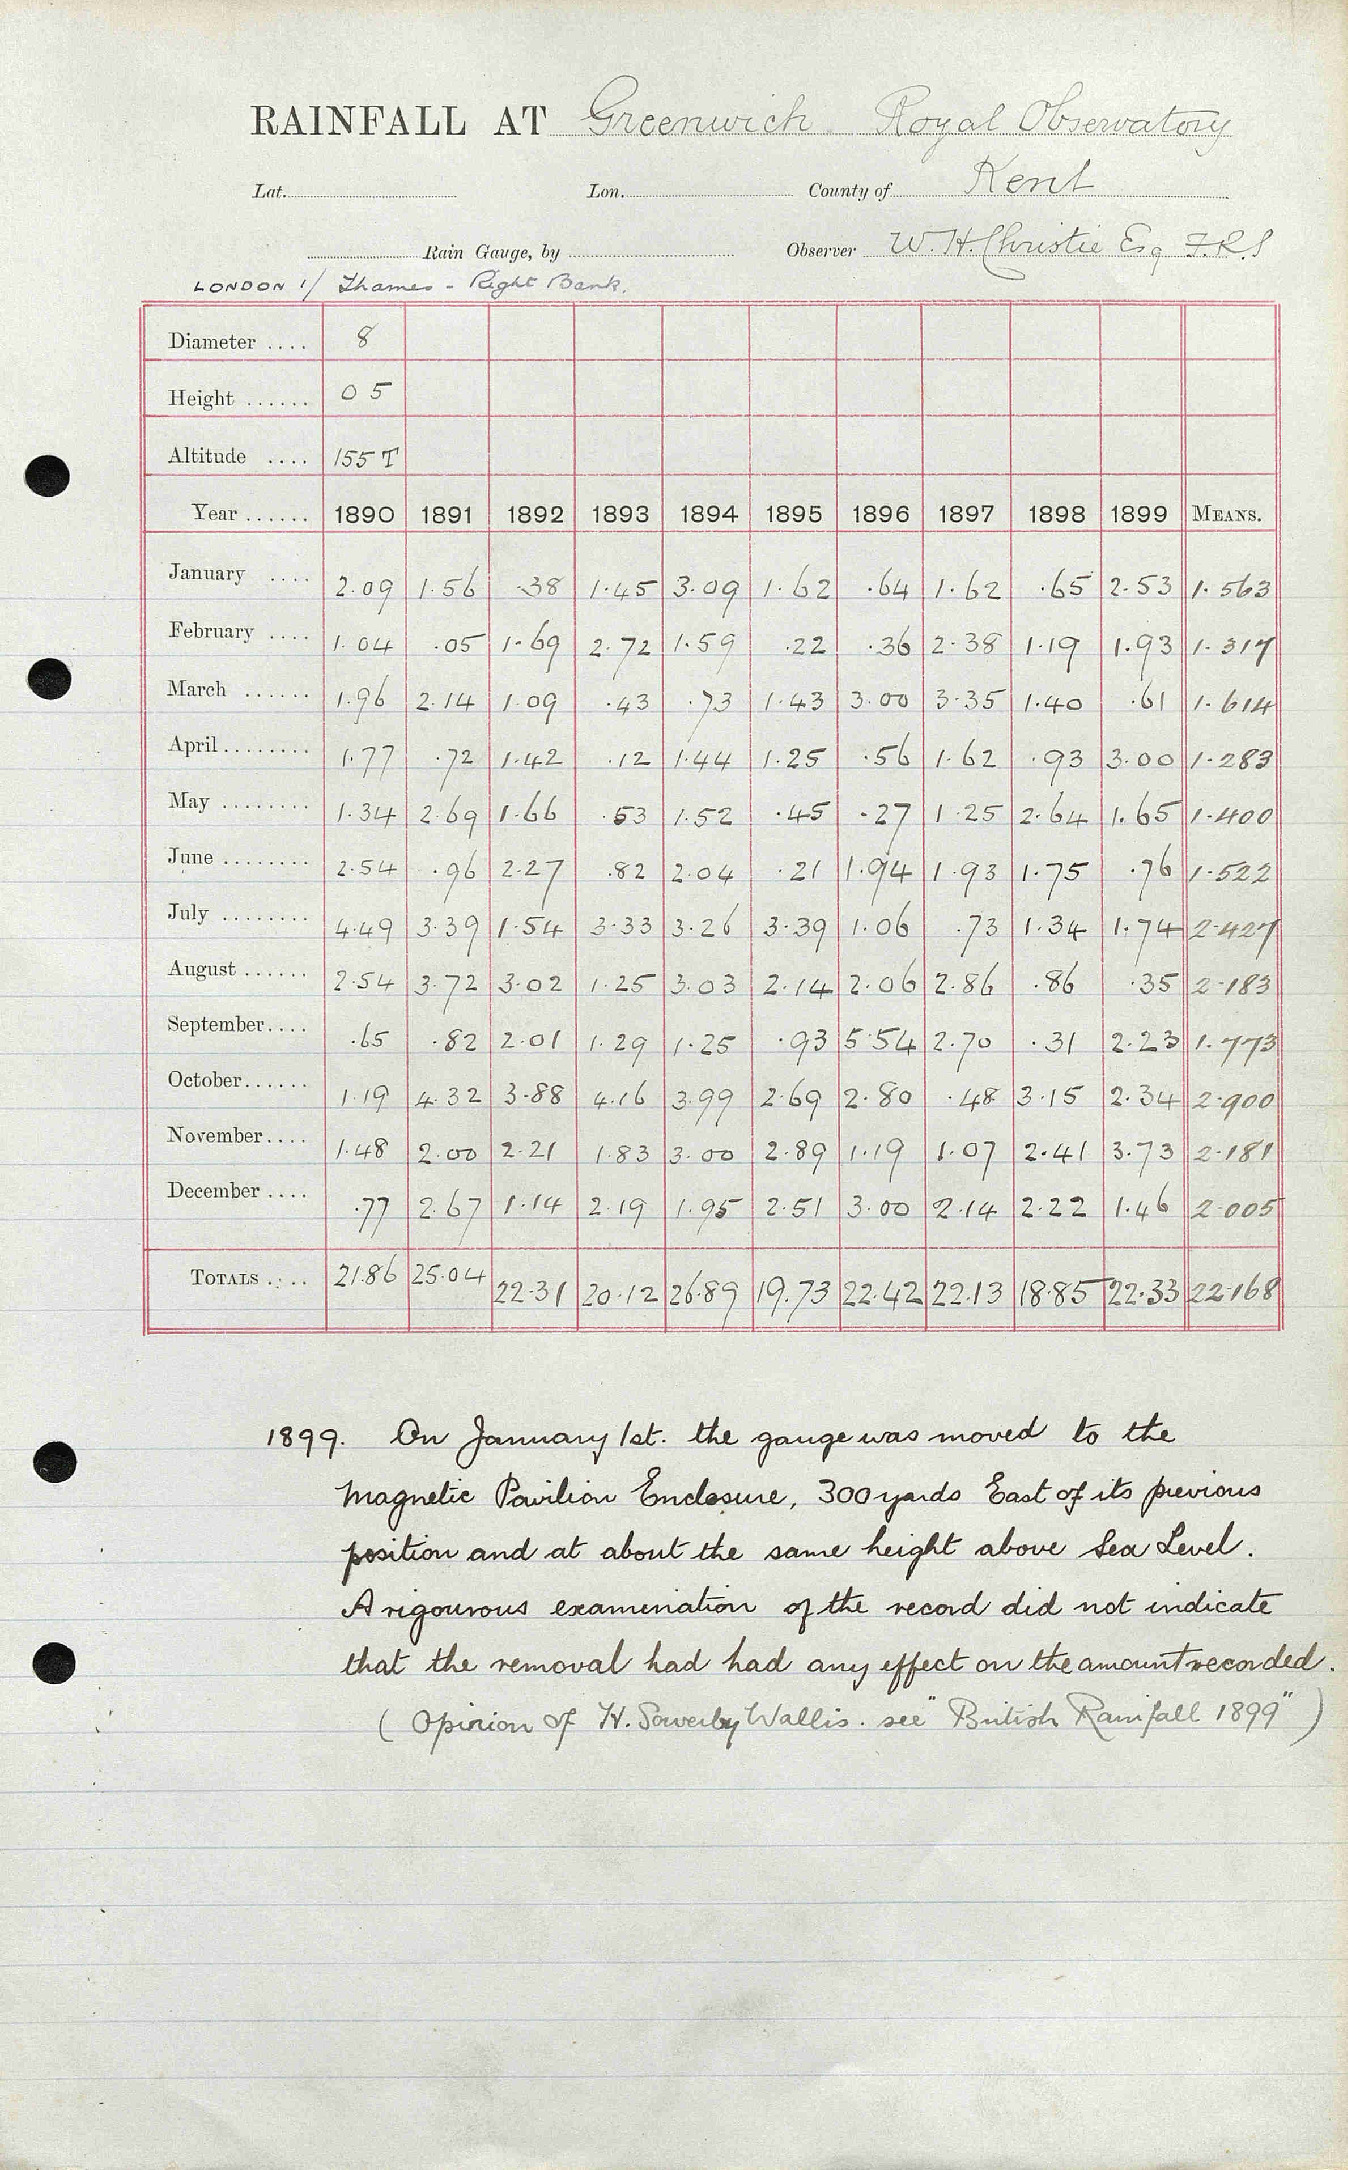 RAINFALL AT Greenwich Royal Observatory
Lat. Lon. County of Kent
Rain Gauge, by Observer W. H. Christie Esq F.R.S
LONDON 1/ Thames - Right Bank.
Diameter .... 8
Height ...... 0 5
Altitude .... 155 T
Year ...... 1890 1891 1892 1893 1894 1895 1896 1897 1898 1899 MEANS.
January .... 2.09 1.56 .38 1.45 3.09 1.62 .64 1.62 .65 2.53 1.563
February .... 1.04 .05 1.69 2.72 1.59 .22 .36 2.38 1.19 1.93 1.317
March ...... 1.96 2.14 1.09 .43 .73 1.43 3.00 3.35 1.40 .61 1.614
April ........ 1.77 .72 1.42 .12 1.44 1.25 .56 1.62 .93 3.00 1.283
May ........ 1.34 2.69 1.66 .53 1.52 .45 .27 1.25 2.64 1.65 1.400
June ........ 2.54 .96 2.27 .82 2.04 .21 1.94 1.93 1.75 .76 1.522
July ........ 4.49 3.39 1.54 3.33 3.26 3.39 1.06 .73 1.34 1.74 2.427
August ...... 2.54 3.72 3.02 1.25 3.03 2.14 2.06 2.86 .86 .35 2.183
September.... .65 .82 2.01 1.29 1.25 .93 5.54 2.70 .31 2.23 1.773
October...... 1.19 4.32 3.88 4.16 3.99 2.69 2.80 .48 3.15 2.34 2.900
November.... 1.48 2.00 2.21 1.83 3.00 2.89 1.19 1.07 2.41 3.73 2.181
December .... .77 2.67 1.14 2.19 1.95 2.51 3.00 2.14 2.22 1.46 2.005
TOTALS .... 21.86 25.04 22.31 20.12 26.89 19.73 22.42 22.13 18.85 22.33 22.168
1899. On January 1st. the gauge was moved to the
Magnetic Pavilion Enclosure, 300 yards East of its previous
position and at about the same height above Sea Level.
A rigourous examination of the record did not indicate
that the removal had had any effect on the amount recorded.
(Opinion of H. Sowerby Wallis. see "British Rainfall 1899")